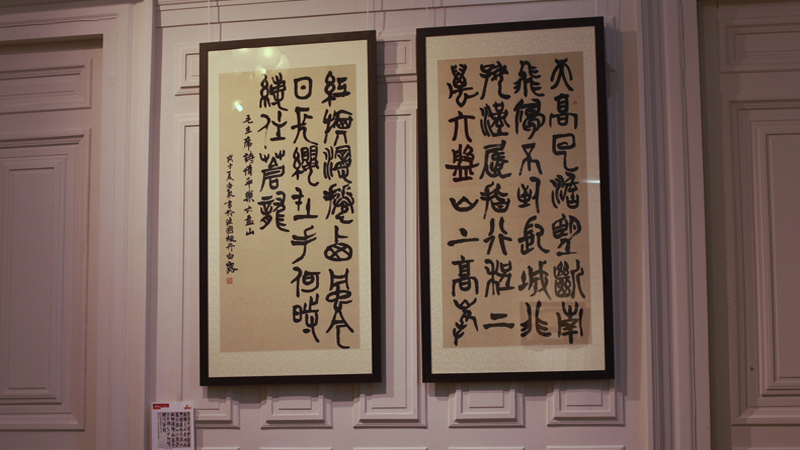 天高云淡望斷南
飛雁不到長城非
好漢屈指行程二
萬六盤山上高峯
紅旗漫捲西風今
日長纓在手何時
縛住蒼龍
毛主席詩清平樂六盘山
戊子夏書於法國楓丹白露